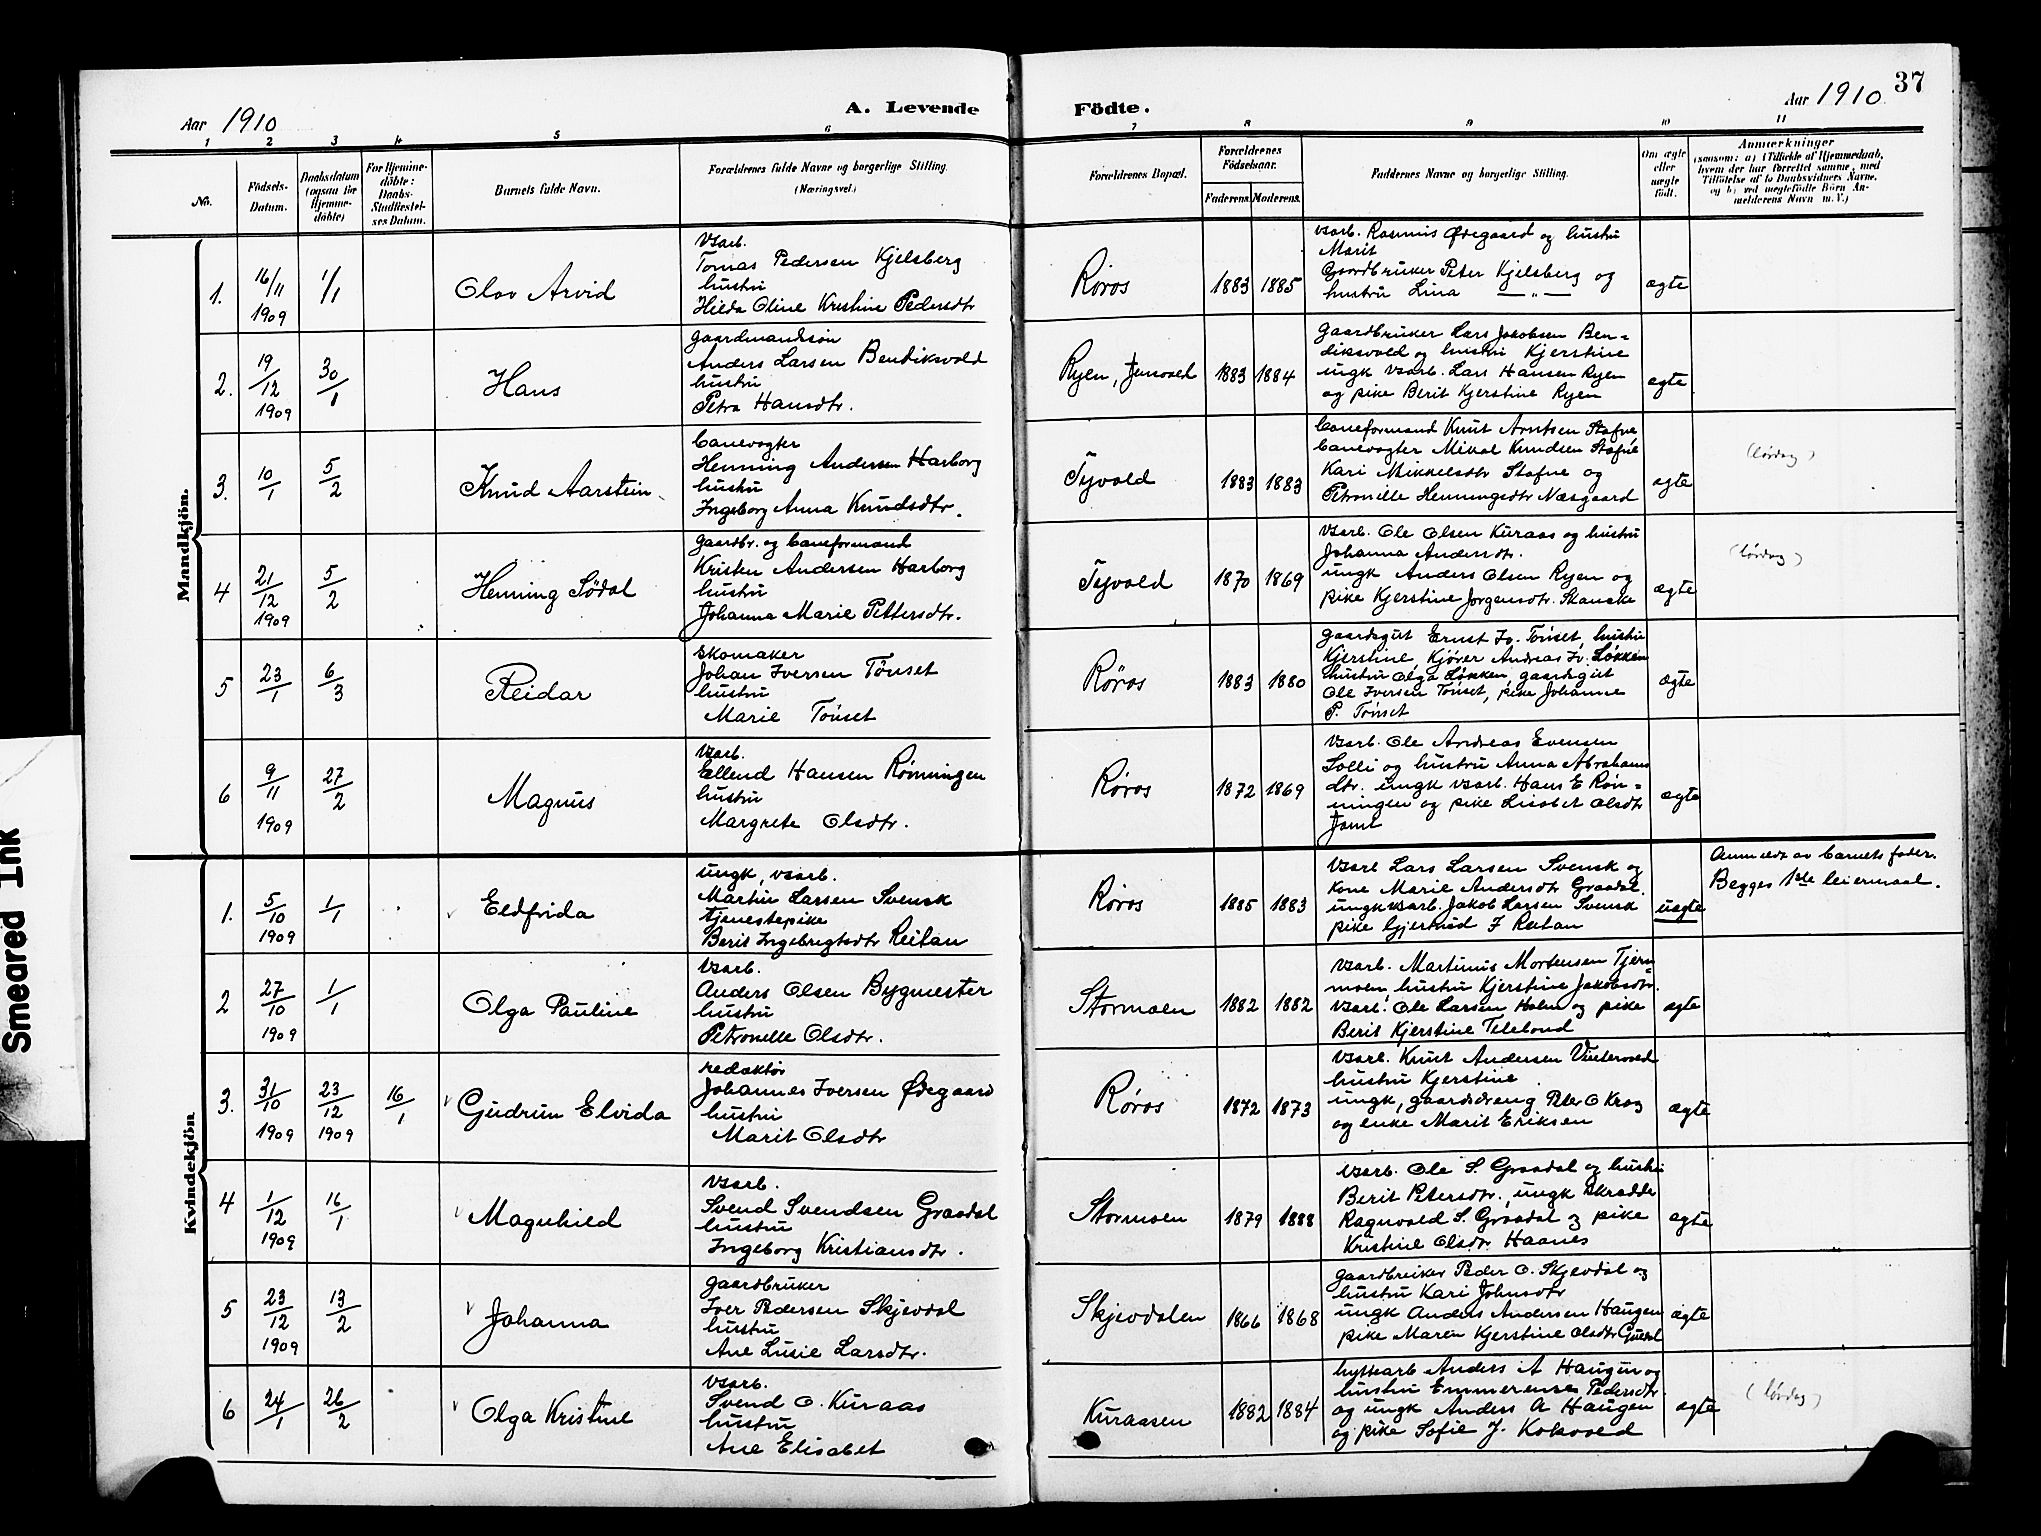 37
Aar 1910
A. Levende
Födte.
Aar 1910
1 2 3 4 5 6 7 8 9 10 11
No.
Födsels-
Datum.
Daabsdatum
(ogsaa for
Hjemme-
døbte)
For Hjemme-
døbte:
Daabs-
Stadfæstel-
ses Datum.
Barnets fulde Navn.
Forældrenes fulde Navne og borgerlige Stilling.
(Næringsvei.)
Forældrenes Bopæl.
Forældrenes
Födselsaar.
Faderens. Moderens.
Faddernes Navne og borgerlige Stilling.
Om ægte
eller
uægte
født.
Anmærkninger
(saasom: a) i Tilfælde af Hjemmedaab,
hvem der har forrettet samme, med
Tilföielse af to Daabsvidners Navne,
og b) ved uægtefödte Börn An-
melderens Navn m. V.)
Mandkjön.
1.
16/11
1909
1/1
Olav Arvid
Vsarb.
Tomas Pedersen Kjelsberg
hustru
Hilda Oline Kristine Pedersdtr
Røros
1883 1885
Vsarb. Rasmus Ødegaard og hustru
Marit
Gaardbruker Peter Kjelsberg og
hustru Lina —„—
ægte
2.
19/12
1909
30/1
Hans
gaardmandsøn
Anders Larsen Bendiksvold
hustru
Petra Hansdtr.
Ryen, Jensvold
1883 1884
Gaardbruker Lars Jakobsen Ben-
diksvold og hustru Kjerstine
ungk vsarb. Lars Hansen Ryen
og pike Berit Kjerstine Ryen
ægte
3.
10/1
5/2
Knud Aarstein
banevogter
Henning Andersen Harborg
hustru
Ingeborg Anna Knudsdtr.
Tyvold
1883 1883
baneformand Knut Arntsen Stafne
banevogter Mikal Knudsen Stafne
Kari Mikkelsdtr Stafne og
Petronille Henningsdtr Næsgaard
ægte
(lørdag)
4
21/12
1909
5/2
Henning Södal
gaardbr. og baneformand
Kristen Andersen Harborg
hustru
Johanna Marie Pettersdtr.
Tyvold
1870 1869
Vsarb. Ole Olsen Kuraas og hustru
Johanna Andersdtr.
ungk Anders Olsen Ryen og
pike Kjerstine Jørgensdtr. Skancke
ægte
(lørdag)
5
23/1
6/3
Reidar
skomaker
Johan Iversen Tønset
hustru
Marie Tønset
Røros
1883 1880
gaardsgut Ernst Iv. Tønset, hustru
Kjerstine, Kjører Andreas Iv. Løkken
hustru Olga Løkken, gaardsgut
Ole Iversen Tønset, pike Johanne
P. Tønset
ægte
6
9/11
1909
27/2
Magnus
Vsarb.
Ellend Hansen Rønningen
hustru
Margrete Olsdtr.
Røros
1872 1869
Vsarb. Ole Andreas Evensen
Solli og hustru Anna Abrahams
dtr. ungk vsarb. Hans E Røn-
ningen og pike Lisabet Olsdtr
Jamt
ægte
Kvindekjön
1.
5/10
1909
1/1
Eldfrida
ungk, vsarb.
Martin Larsen Svensk
tjenestepike
Berit Ingebrigtsdtr Reitan
Røros
1885 1883
Vsarb Lars Larsen Svensk og
kone Marie Andersdtr Graadal.
ungk vsarb. Jakob Larsen Svensk
pike Gjertrud I Reitan
uægte
Anmeldt av barnets fader.
Begges 1ste leiermaal.
2
27/10
1909
1/1
Olga Pauline
Vsarb.
Anders Olsen Bygmester
hustru
Petronelle Olsdtr.
Stormoen
1882 1882
Vsarb. Martinus Mortensen Tjern
moen, hustru Kjerstine Jakobsdtr.
Vsarb. Ole Larsen Holm og pike
Berit Kjerstine
ægte
3.
31/10
1909
23/12
1909
16/1
Gudrun Elvida
redaktør
Johannes Iversen Ødegaard
hustru
Marit Olsdtr
Røros
1872 1873
Vsarb. Knut Andersen Vintervold
hustru Kjerstine
ungk, gaardsdreng Peter O Krog
og enke Marit Eriksen
ægte
4
1/12
1909
16/1
Magnhild
Vsarb.
Svend Svendsen Graadal
hustru
Ingeborg Kristiansdtr.
Stormoen
1879 1888
Vsarb. Ole S. Graadal og hustru
Berit Petersdtr. ungk skrædder
Ragnvald S. Graadal og pike
Kristine Olsdtr. Haanes
ægte
5
23/12
1909
13/2
Johanna
gaardbruker
Iver Pedersen Skjevdal
hustru
Ane Lusie Larsdtr.
Skjevdalen
1866 1868
gaardbruker Peder O. Skjevdal og
hustru Kari Johnsdtr
ungk Anders Andersen Haugen
pike Maren Kjerstine Olsdtr
ægte
6
24/1
26/2
Olga Kristine
Vsarb.
Svend O. Kuraas
hustru
Ane Elisabet
Kuraasen
1882 1884
hyttearb Anders A Haugen og
hustru Emmerense Pedersdtr.
og ungk Anders A Haugen
og pike Sofie J. Kokvold
ægte
(lørdag)
Smeared Ink